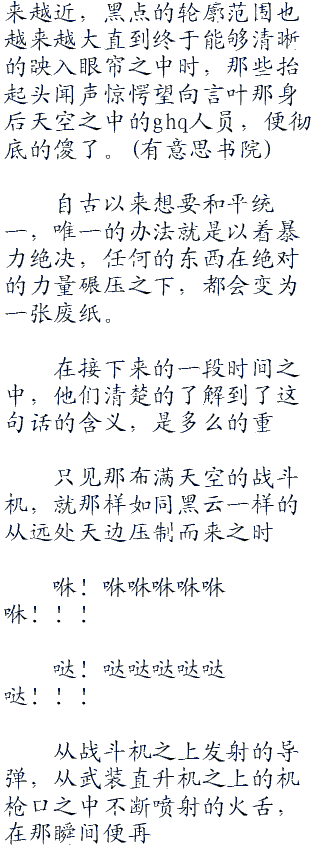 来越近，黑点的轮廓范围也
越来越大直到终于能够清晰
的映入眼帘之中时，那些抬
起头闻声惊愕望向言叶那身
后天空之中的ghq人员，便彻
底的傻了。(有意思书院)
自古以来想要和平统
一，唯一的办法就是以着暴
力绝决，任何的东西在绝对
的力量碾压之下，都会变为
一张废纸。
在接下来的一段时间之
中，他们清楚的了解到了这
句话的含义，是多么的重
只见那布满天空的战斗
机，就那样如同黑云一样的
从远处天边压制而来之时
咻！咻咻咻咻咻
咻！！！
哒！哒哒哒哒哒
哒！！！
从战斗机之上发射的导
弹，从武装直升机之上的机
枪口之中不断喷射的火舌，
在那瞬间便再